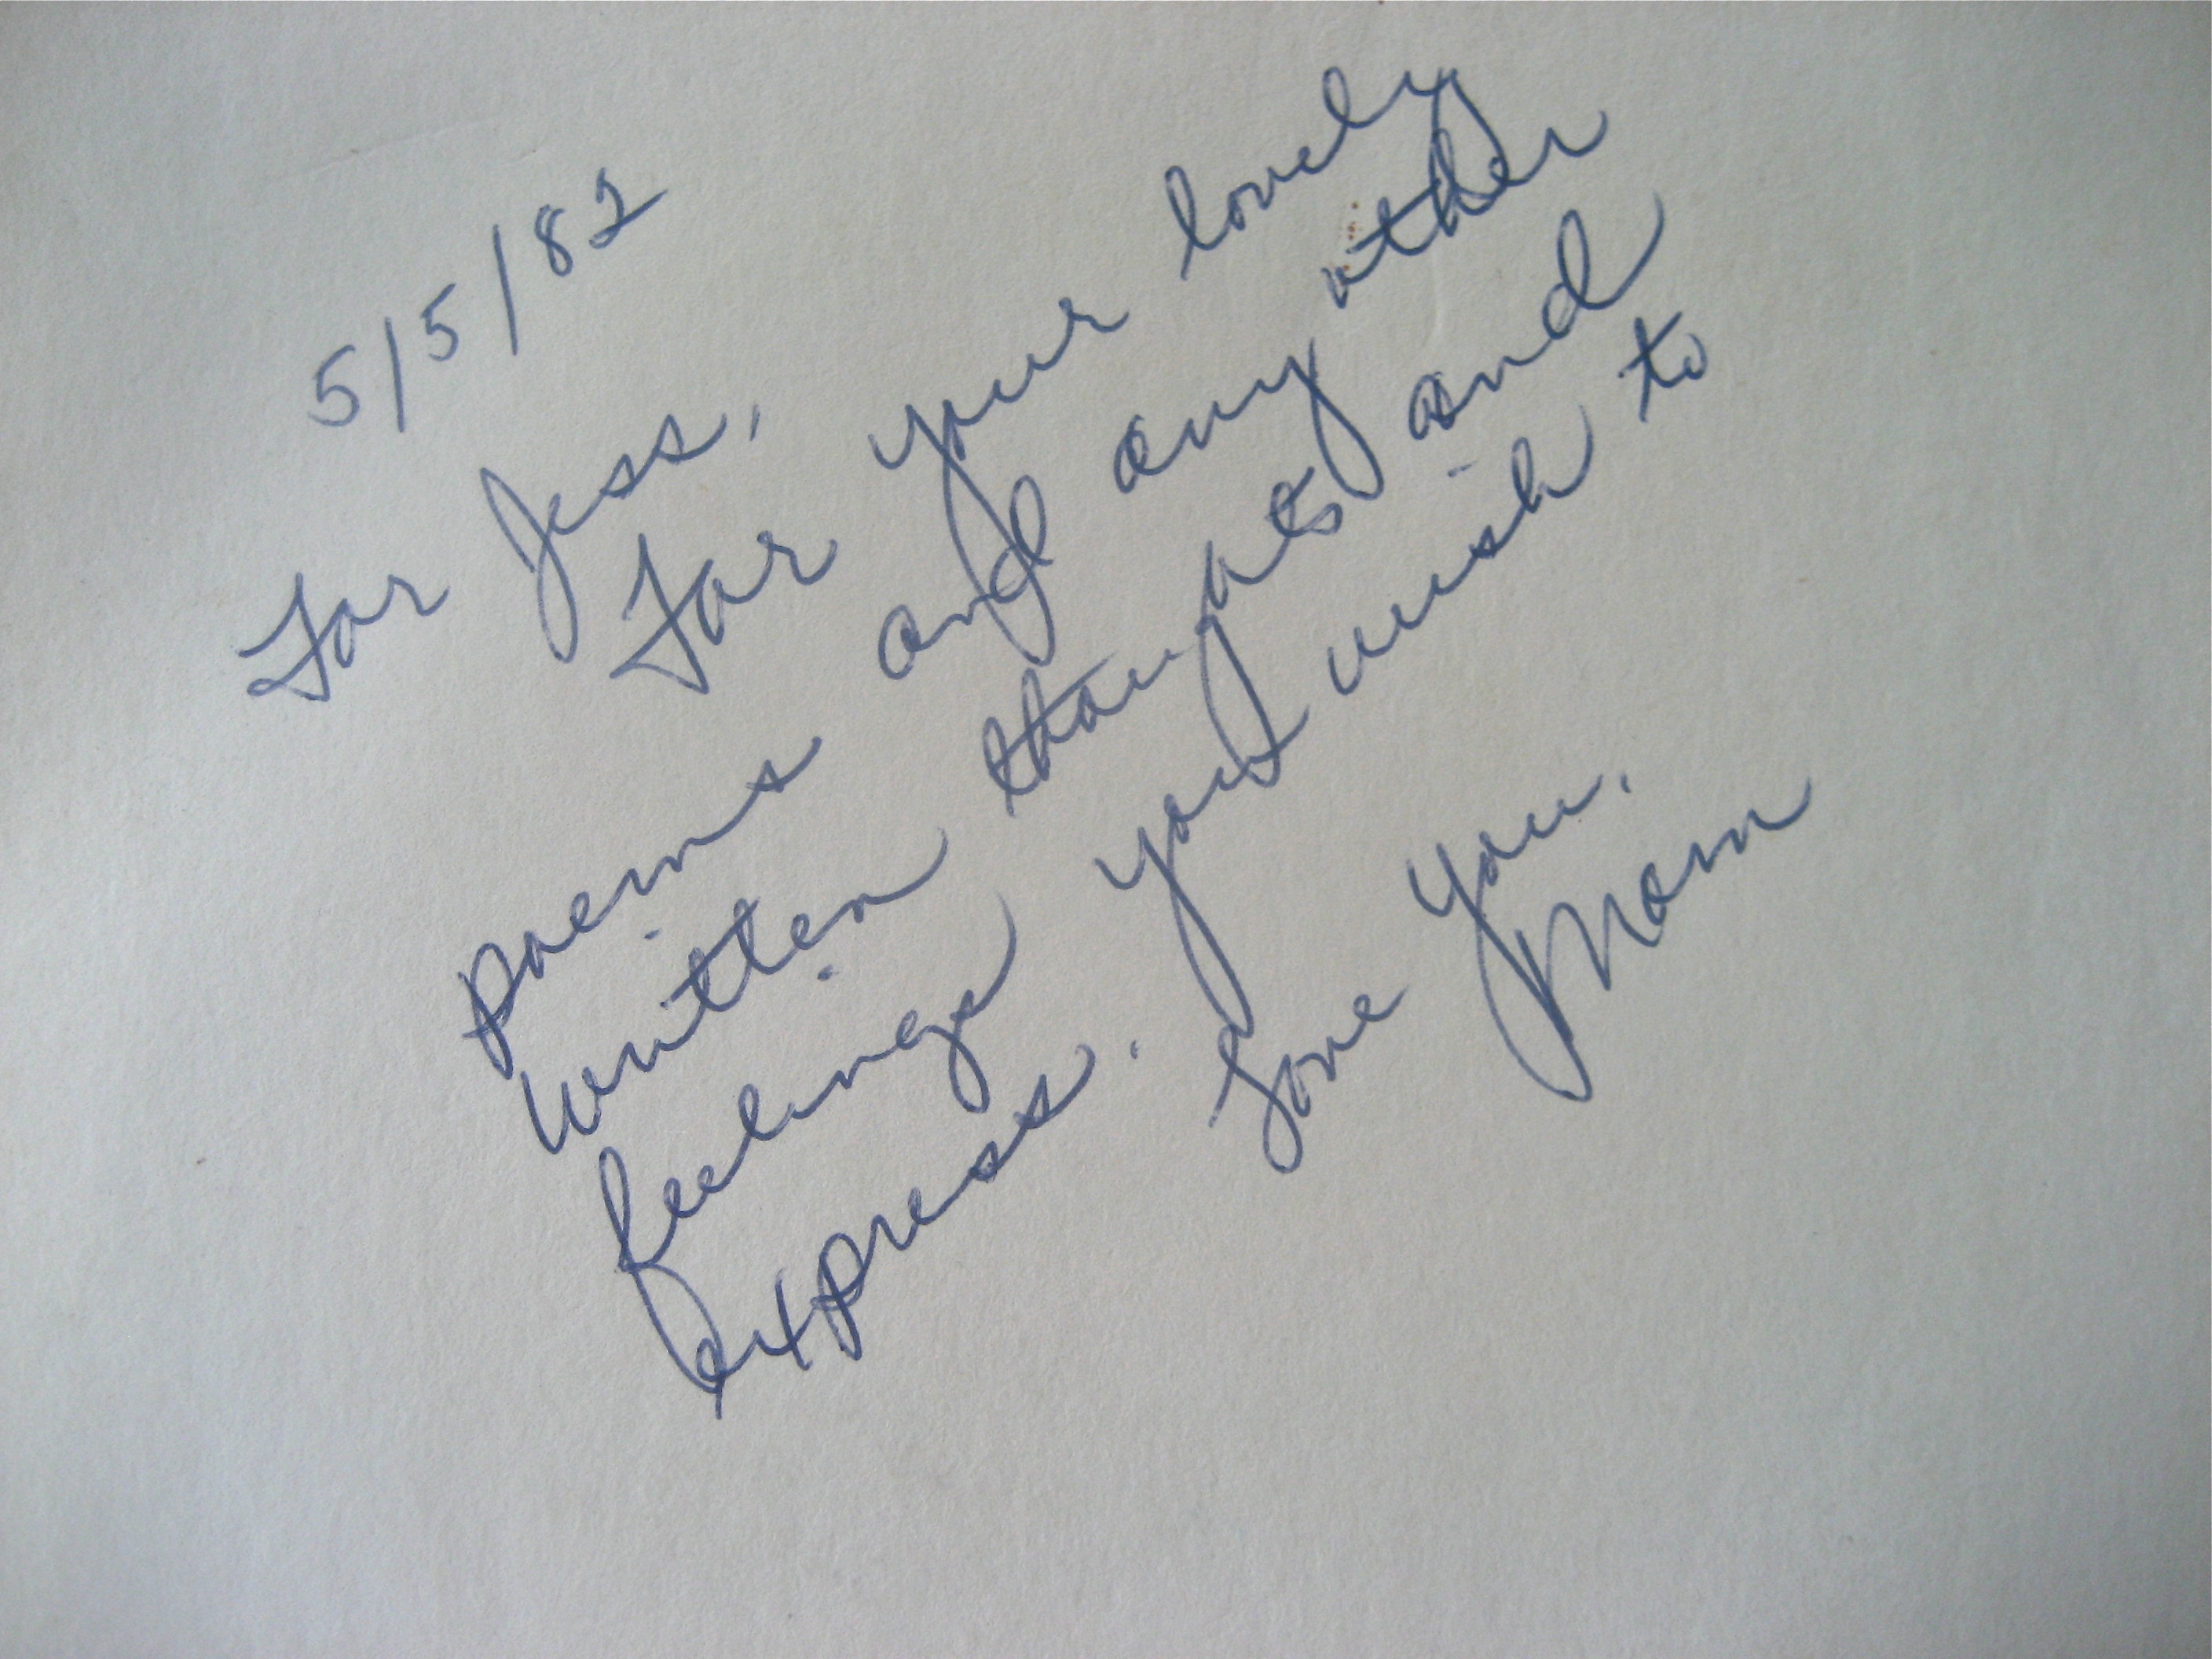 5/5/82
For Jess,
For your lovely
poems and any other
written thoughts and
feelings you wish to
express.
Love you,
Mom